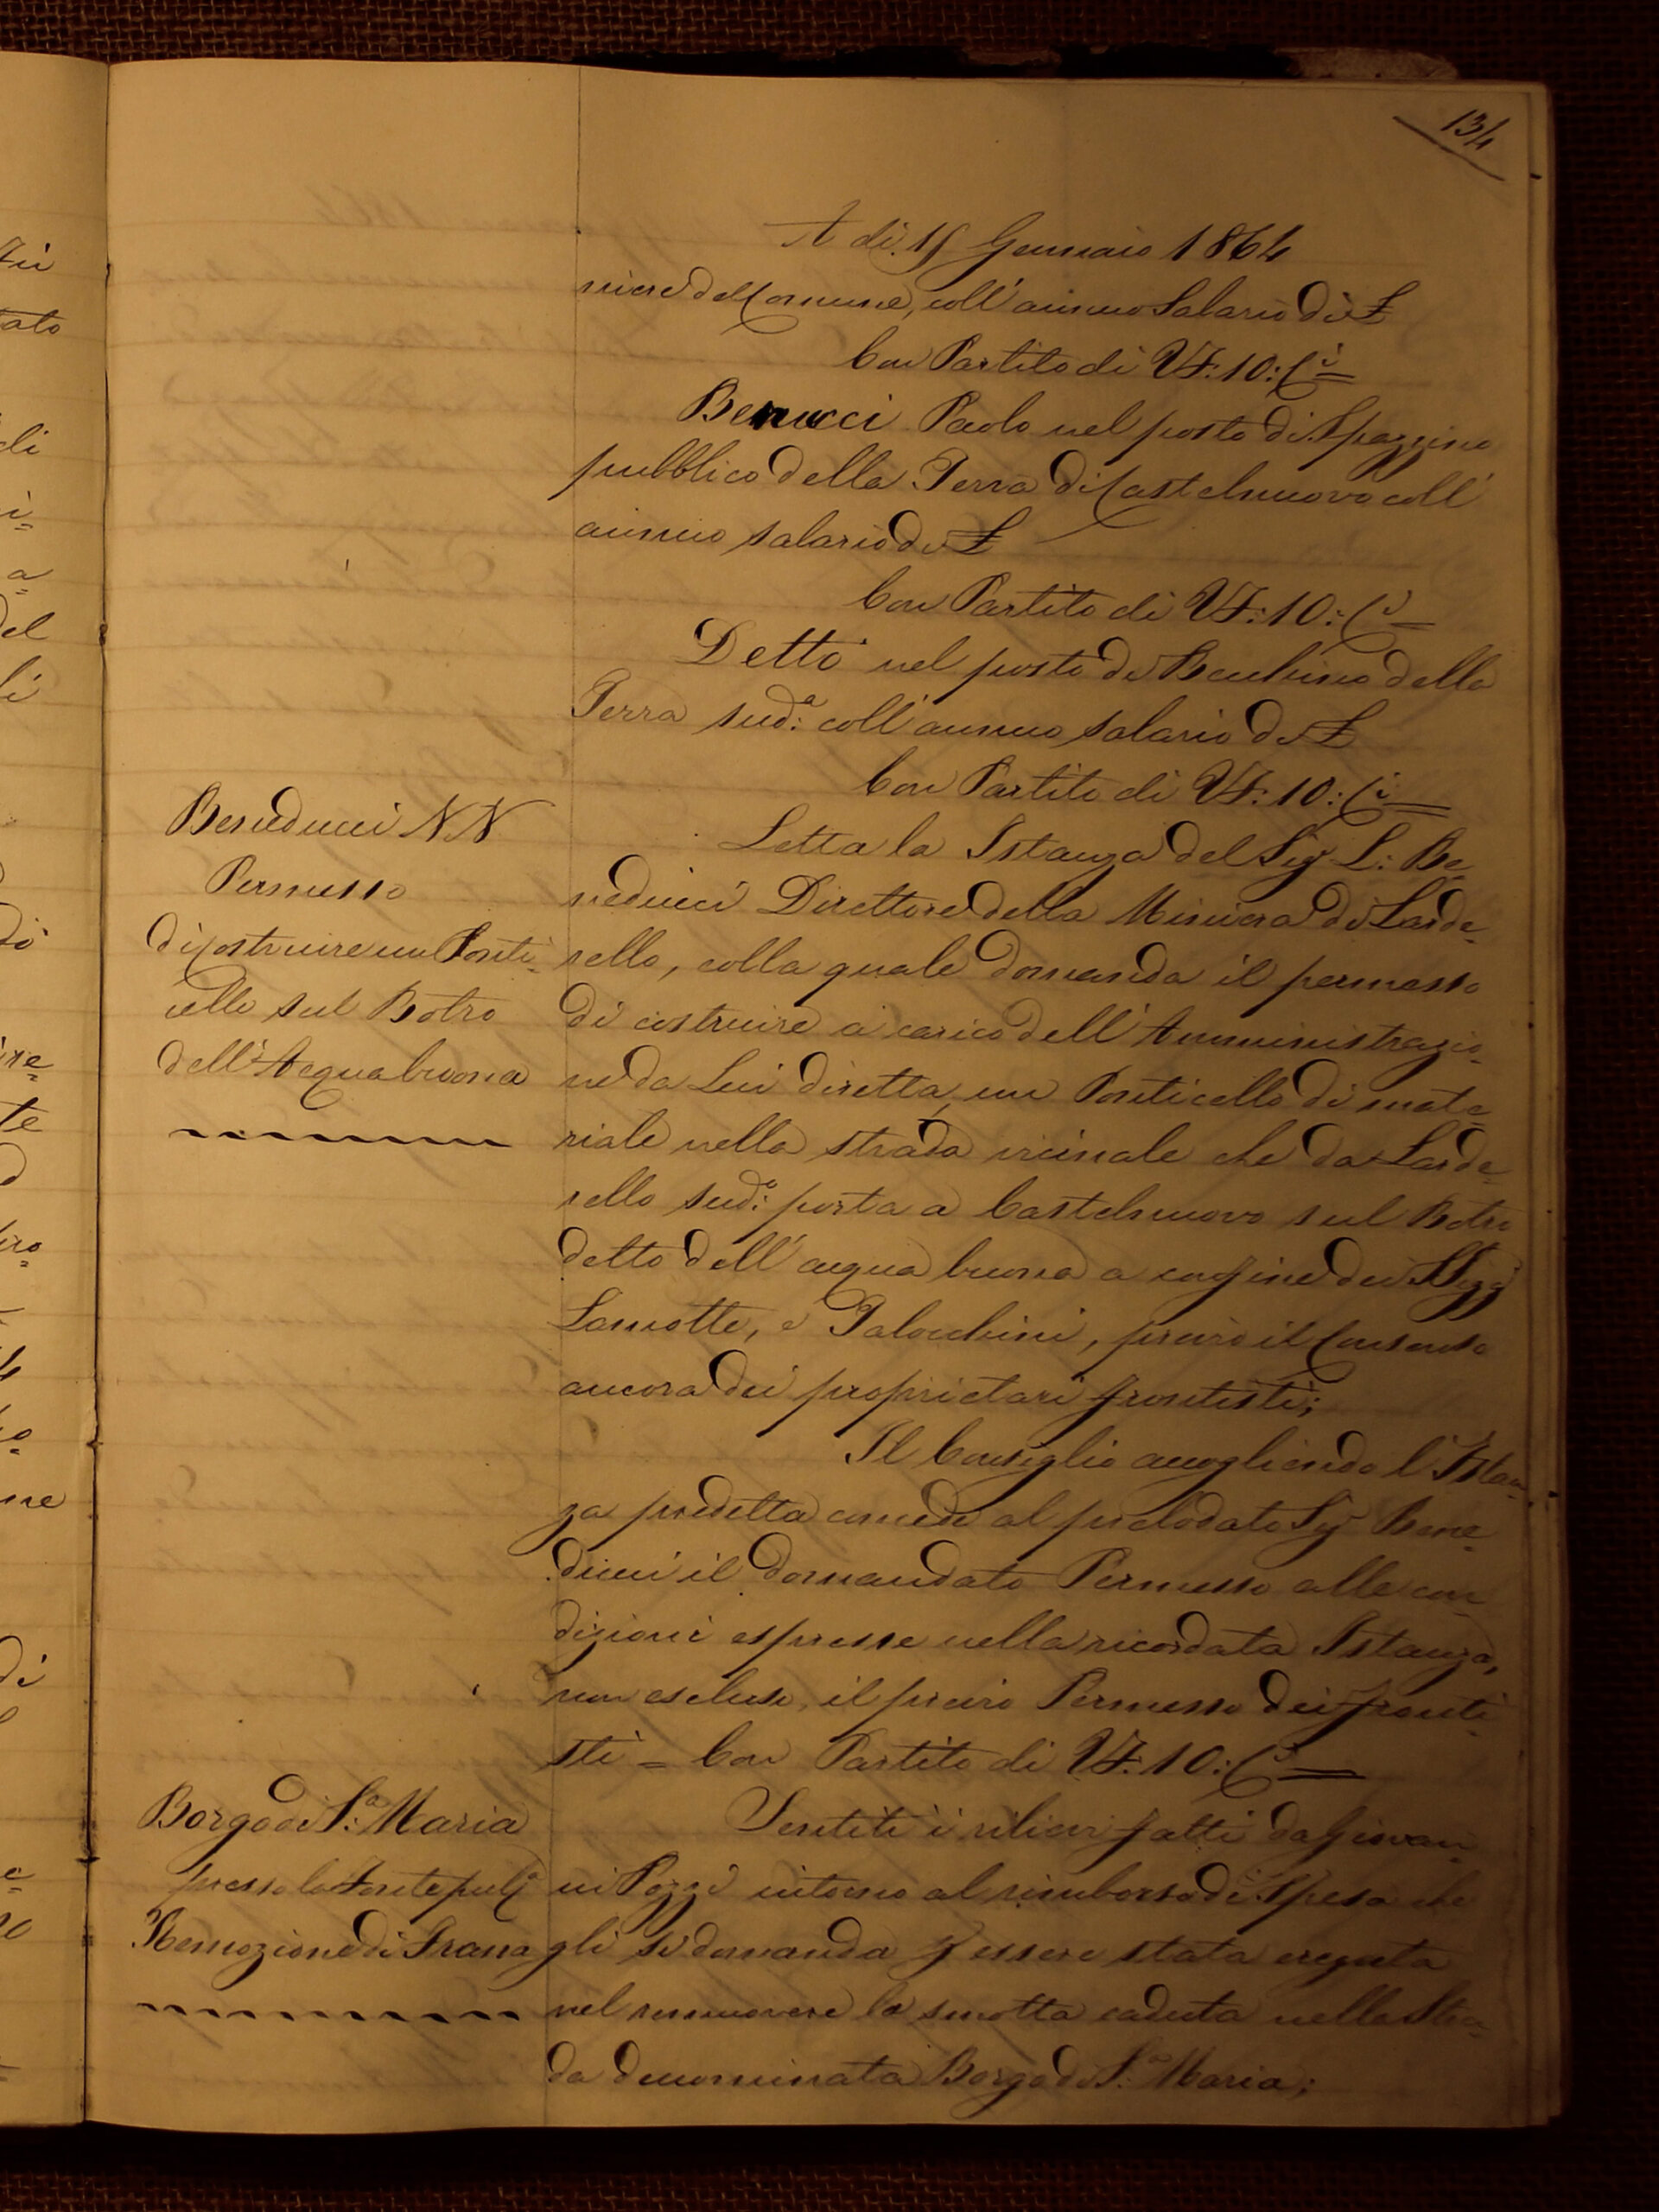 134
A dì 15 Gennaio 1864
niere del Comune, coll' annuo Salario di £
Con Partito di VF: 10: Ci
Benucci Paolo nel posto di Spazzino
pubblico della Terra di Castelnuovo coll'
annuo salario di £
Con Partito di VF: 10: Ci
Detto nel posto di Becchino della
Terra sudª: coll' annuo salario di £
Con Partito di VF: 10: Ci
Beneducci NN
Permesso
di Costruire un Ponti=
cello sul Botro
dell' Acquabuona
Letta la Istanza del Sig L: Be=
neducci Direttore della Miniera di Larde=
rello, colla quale domanda il permesso
di costruire a carico dell' Amministrazio=
ne da Lui diretta, un Ponticello di mate=
riale nella strada vicinale che da Larde=
rello sudº: porta a Castelnuovo sul Botro
detto dell' acqua buona a confine dei SSigg
Lamotte, e Talocchini, previo il Consenso
ancora dei proprietari frontisti;
Il Consiglio accogliendo l' Istan=
za predetta concede al prelodato Sig Bene=
ducci il domandato Permesso alle con=
dizioni espresse nella ricordata Istanza,
non escluso, il previo Permesso dei fronti=
sti = Con Partito di VF: 10: Ci
Borgo di S:ª Maria
presso la Fonte pubª
Remozione di Frana
Sentiti i rilievi fatti da Giovan=
ni Pozzi intorno al rimborso di Spesa che
gli si domanda p essere stata erogata
nel remuovere la smotta caduta nella Stra=
da denominata Borgo di S:ª Maria;